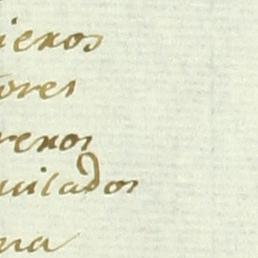 ieros
ores
renos
uilados
na